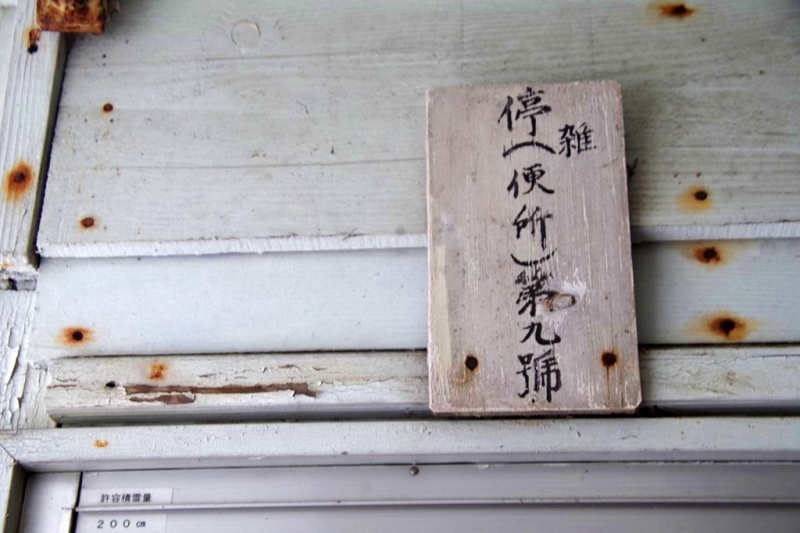 雑
停(便所)第九號
許容積雪量
200㎝